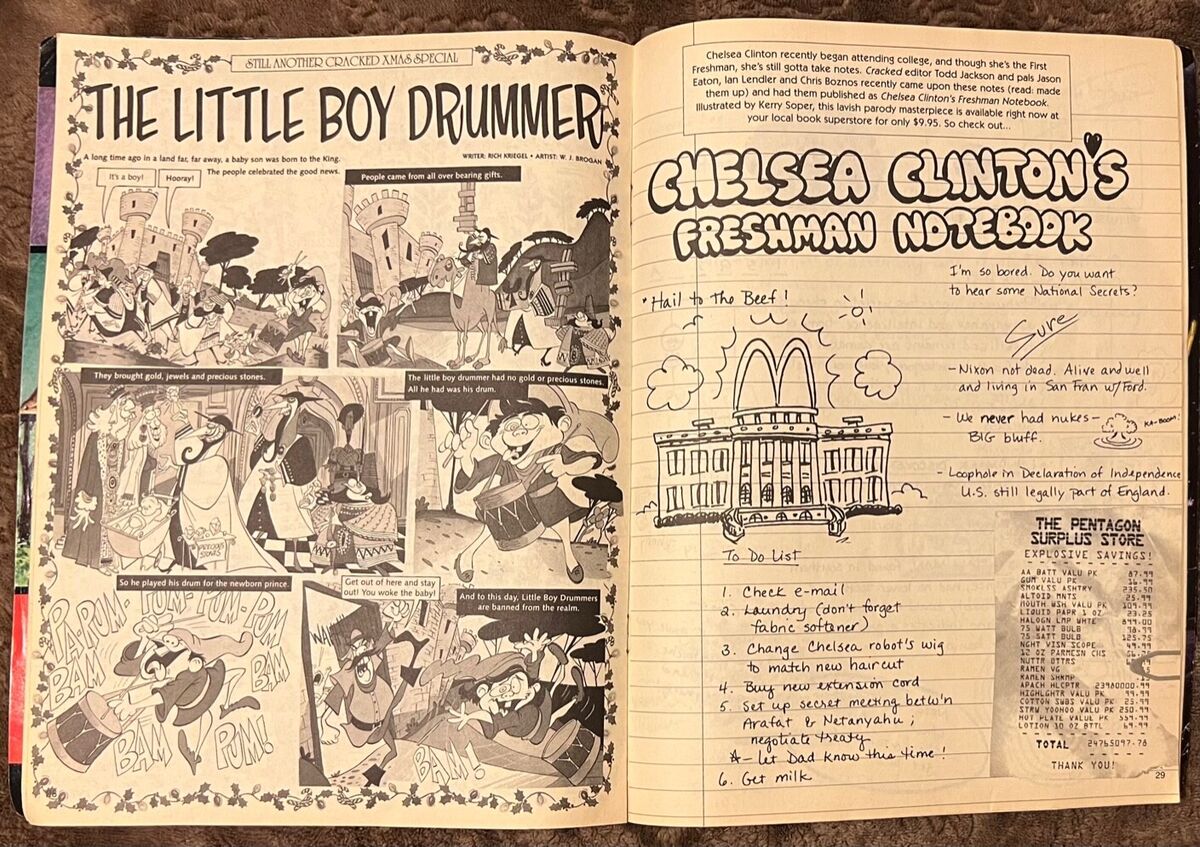 STILL ANOTHER CRACKED XMAS SPECIAL
THE LITTLE BOY DRUMMER
A long time ago in a land far, far away, a baby son was born to the King.
WRITER: RICH KRIEGEL • ARTIST: W. J. BROGAN
The people celebrated the good news.
It's a boy!
Hooray!
People came from all over bearing gifts.
They brought gold, jewels and precious stones.
PRECIOUS
STONES
The little boy drummer had no gold or precious stones.
All he had was his drum.
So he played his drum for the newborn prince.
PA-PUM-PUM-PUM-PUM
BAM
BAM
BAM
PUM!
Get out of here and stay
out! You woke the baby!
And to this day, Little Boy Drummers
are banned from the realm.
BAM!
Chelsea Clinton recently began attending college, and though she's the First
Freshman, she's still gotta take notes. Cracked editor Todd Jackson and pals Jason
Eaton, Ian Lendler and Chris Boznos recently came upon these notes (read: made
them up) and had them published as Chelsea Clinton's Freshman Notebook.
Illustrated by Kerry Soper, this lavish parody masterpiece is available right now at
your local book superstore for only $9.95. So check out...
CHELSEA CLINTON'S
FRESHMAN NOTEBOOK
I'm so bored. Do you want
to hear some National Secrets?
Sure
"Hail to The Beef!
- Nixon not dead. Alive and well
and living in San Fran w/Ford.
- We never had nukes -
BIG bluff.
KA-BOOM!
- Loophole in Declaration of Independence
U.S. still legally part of England.
To Do List
1. Check e-mail
2. Laundry (don't forget
fabric softener)
3. Change Chelsea robot's wig
to match new haircut
4. Buy new extension cord
5. Set up secret meeting betw'n
Arafat & Netanyahu;
negotiate treaty
- let Dad know this time!
6. Get milk
THE PENTAGON
SURPLUS STORE
EXPLOSIVE SAVINGS!
AA BATT VALU PK 87.99
GUM VALU PK 16.99
SMOKLESS ASHTRY 235.50
ALTOID MNTS 25.99
MOUTH WSH VALU PK 109.99
LIQUID PAPR 1 OZ 23.25
HALOGN LMP WHTE 899.00
75 WATT BULB 98.99
75 WATT BULB 125.75
NGHT VISN SCOPE 49.99
12 OZ PARMESN CHS
NUTTR BTTRS
RAMEN VG
RAMEN SHRMP
APACH HLCPTR 23980000.99
HIGHLGHTR VALU PK 99.99
COTTON SWBS VALU PK 25.99
STRW YOOHOO VALU PK 250.99
HOT PLATE VALUE PK 559.99
LOTION 10 OZ BTTL 69.99
TOTAL 24765097.78
THANK YOU!
29